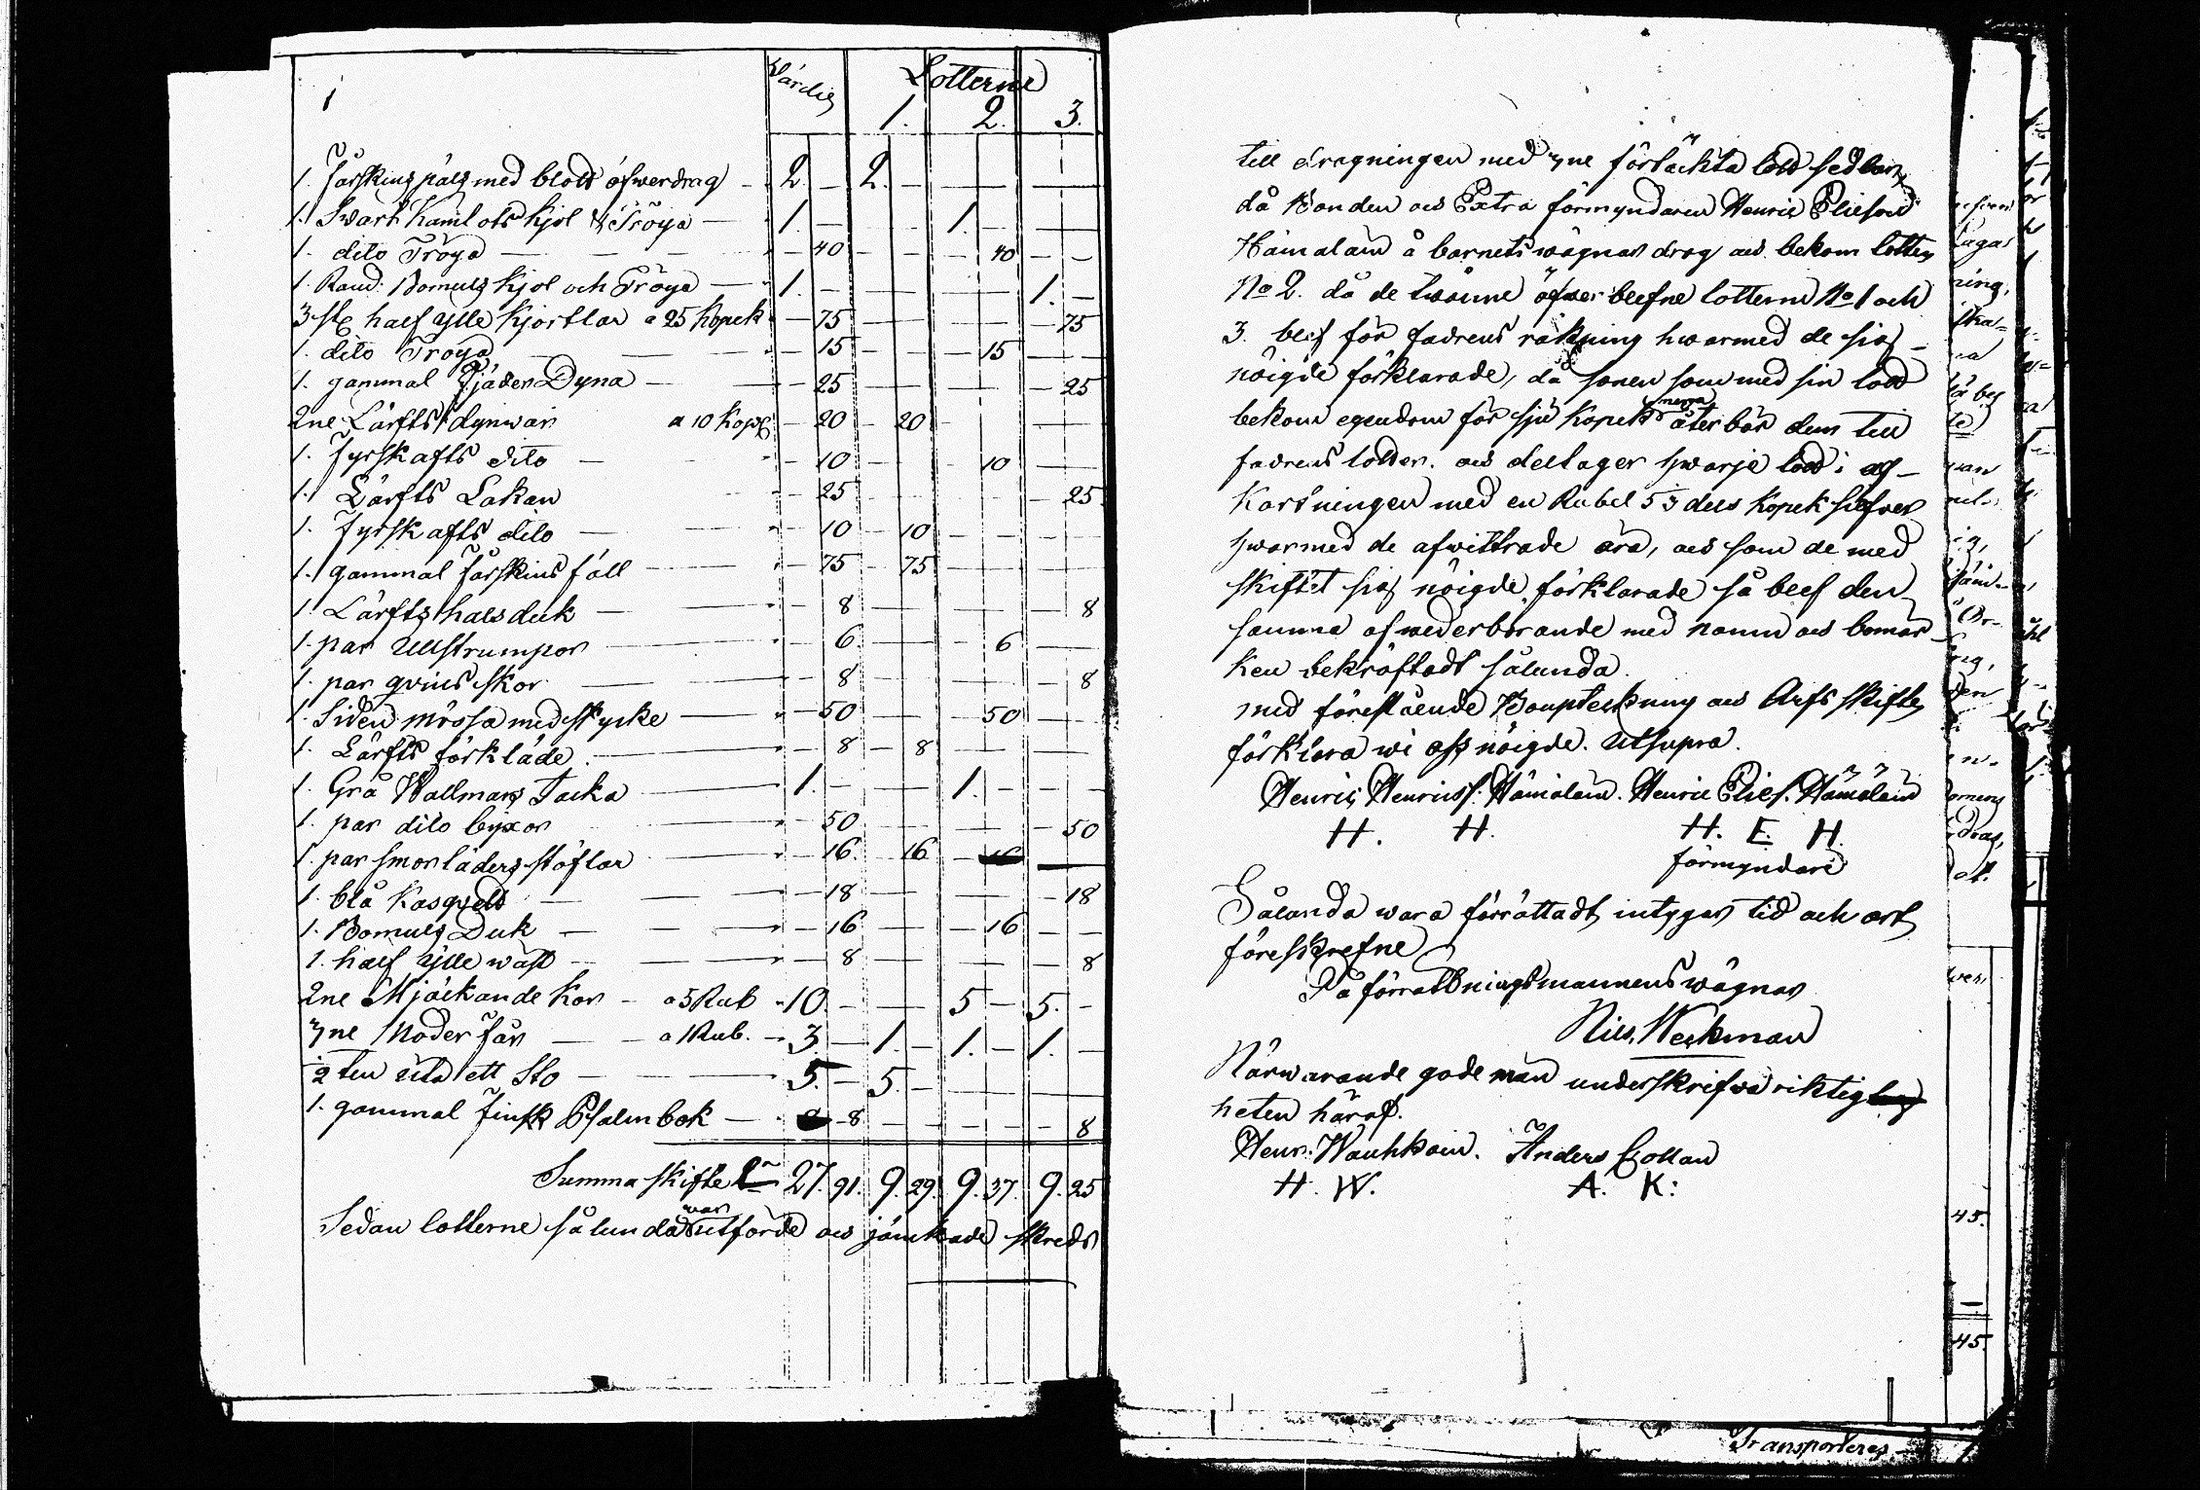 Värdie Lotterne
1. 2. 3.
1. Fårskins päls med blott öfwerdrag - 2. - 2. - - -
1. Swart Kamlots Kjol & Tröya - 1. - - 1. - -
1. dito Tröya - - 40 - - - 40 - -
1. Rand. Bomuls Kjol och Tröya - 1. - - - - 1. -
3 st. half ylle Kjortlar a 25 Kopek - 75 - - - - - 75
1. dito Tröya - 15 - - - 15 - -
1. gammal Fjäder Dyna - - 25 - - - - - 25
2ne Lärfts dynwar a 10 Kop. - 20 - 20 - - -
1. Fyrskafts dito - - 10 - - - 10 - -
1. Lärfts Lakan - 25 - - - - - 25
1. Fyrskafts dito - - 10 - 10 - - - -
1. gammal Fårskins fäll - - 75 - 75 - - - -
1. Lärfts halsduk - - 8 - - - - - 8
1. par Ullstrumpor - - 6. - - - 6 - -
1. par qvins skor - - 8 - - - - - 8
1. Siden mössa med stycke - - 50 - - - 50 - -
1. Lärfts förkläde - - 8 - 8 - - - -
1. Grå Wallmans Jacka - 1. - - - 1. - - -
1. par dito byxor - 50 - - - - - 50
1. par smorläders stöflar - - 16. - 16 - - -
1. blå Kasqvett - - 18 - - - - - 18
1. Bomuls Duk - - 16 - - - 16 - -
1. half ylle wäst - - 8 - - - - - 8
2ne Mjölkande Kor - a 5 Rub - 10. - - - 5 - 5. -
3ne Moder Får - a 1 Rub. - 3. - 1. - 1. - 1. -
2 ten uti ett Sto - 5. - 5. - - - -
1. gammal Finsk Psalmbok - - 8 - - - - - 8
Summa skifte 27. 91. 9. 29. 9. 37. 9. 25
Sedan lotterne sålunda war utförde och jämkade skreds
till dragningen med 3ne förtäckta lott sedlar,
då Bonden och Extra förmyndaren Henric Eliesson
Hämäläin å barnets wägnar drog och bekom lotten
No 2. då de twänne öfwer blefne lotterne No 1 och
3. blef för fadrens räkning hwarmed de sig
nöigde förklarade, då sonen som med sin lott
bekom egendom för sju Kopek mera återbär dem till
fadrens lotter. och deltager hwarje lott i af-
Kortningen med en Rubel 53 dels Kopek silfwer
hwarmed de afwittrade äro, och som de med
skiftet sig nöigde förklarade så blef den
samma af wederbörande med namn och bomär-
ken bekräftadt sålunda.
med förestående Boupteckning och Arfs skifte
förklara wi oss nöigde. Utsupra.
Henric Henricss. Hämäläin. Henric Elies. Hämäläin
H. H. H. E. H.
förmyndare
Sålunda wara förrättadt, intygar tid och ort
föreskrefne
På förrättningsmannens wägnar
Nils Weckman
Närwarande gode män underskrifwa riktig
heten häraf.
Henr. Wauhkoin. Anders Collan
H. W. A. K:
45.
45.
Transporteras